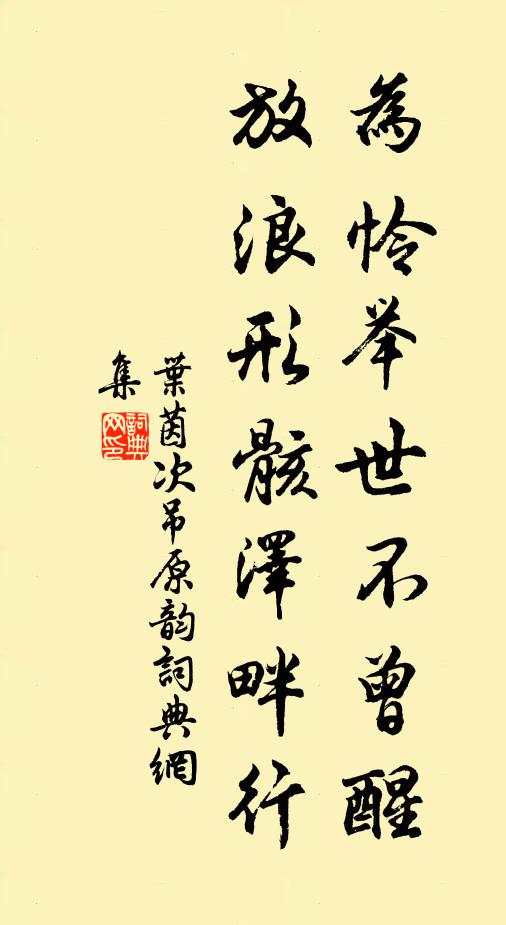 為怜举世不曾醒
放浪形骸澤畔行
葉茵次吊原韵詞典網
集
詞典网印